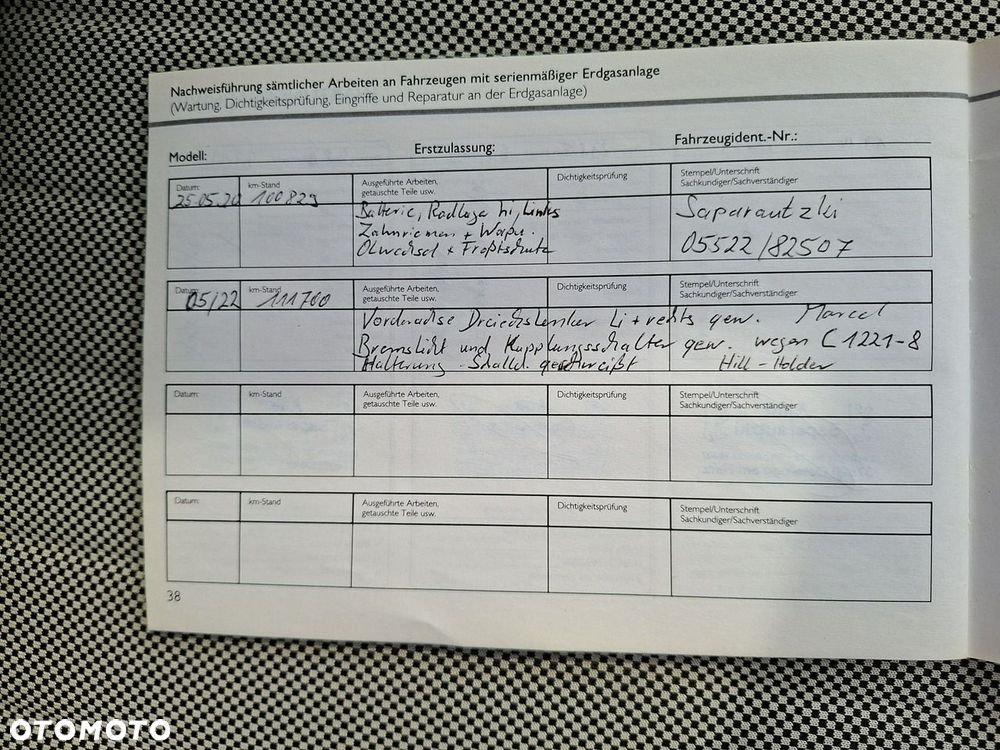 Nachweisführung sämtlicher Arbeiten an Fahrzeugen mit serienmäßiger Erdgasanlage
(Wartung, Dichtigkeitsprüfung, Eingriffe und Reparatur an der Erdgasanlage)
Modell: Erstzulassung: Fahrzeugident.-Nr.:
Datum: km-Stand Ausgeführte Arbeiten, Dichtigkeitsprüfung Stempel/Unterschrift
getauschte Teile usw. Sachkundiger/Sachverständiger
25.05.20 100823
Batterie, Radlager hi, Links Saparautzki
Zahnriemen + Wapu.
Ölwechsel + Frostschutz 05522/82507
Datum: km-Stand Ausgeführte Arbeiten, Dichtigkeitsprüfung Stempel/Unterschrift
05/22 111700 getauschte Teile usw. Sachkundiger/Sachverständiger
Vorderachse Dreieckslenker Li + rechts gew. Marcel
Bremslicht und Kupplungsschalter gew. wegen C1221-8
Halterung Hill-Holder
Datum: km-Stand Ausgeführte Arbeiten, Dichtigkeitsprüfung Stempel/Unterschrift
getauschte Teile usw. Sachkundiger/Sachverständiger
Datum: km-Stand Ausgeführte Arbeiten, Dichtigkeitsprüfung Stempel/Unterschrift
getauschte Teile usw. Sachkundiger/Sachverständiger
38
OTOMOTO